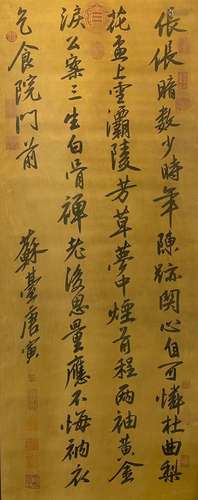 伥伥暗数少時年陳跡関心自可憐杜曲梨
花盃上雪灞陵芳草夢中煙前程兩袖黄金
淚公案三生白骨禅老後思量應不悔衲衣
乞食院門前
蘇臺唐寅